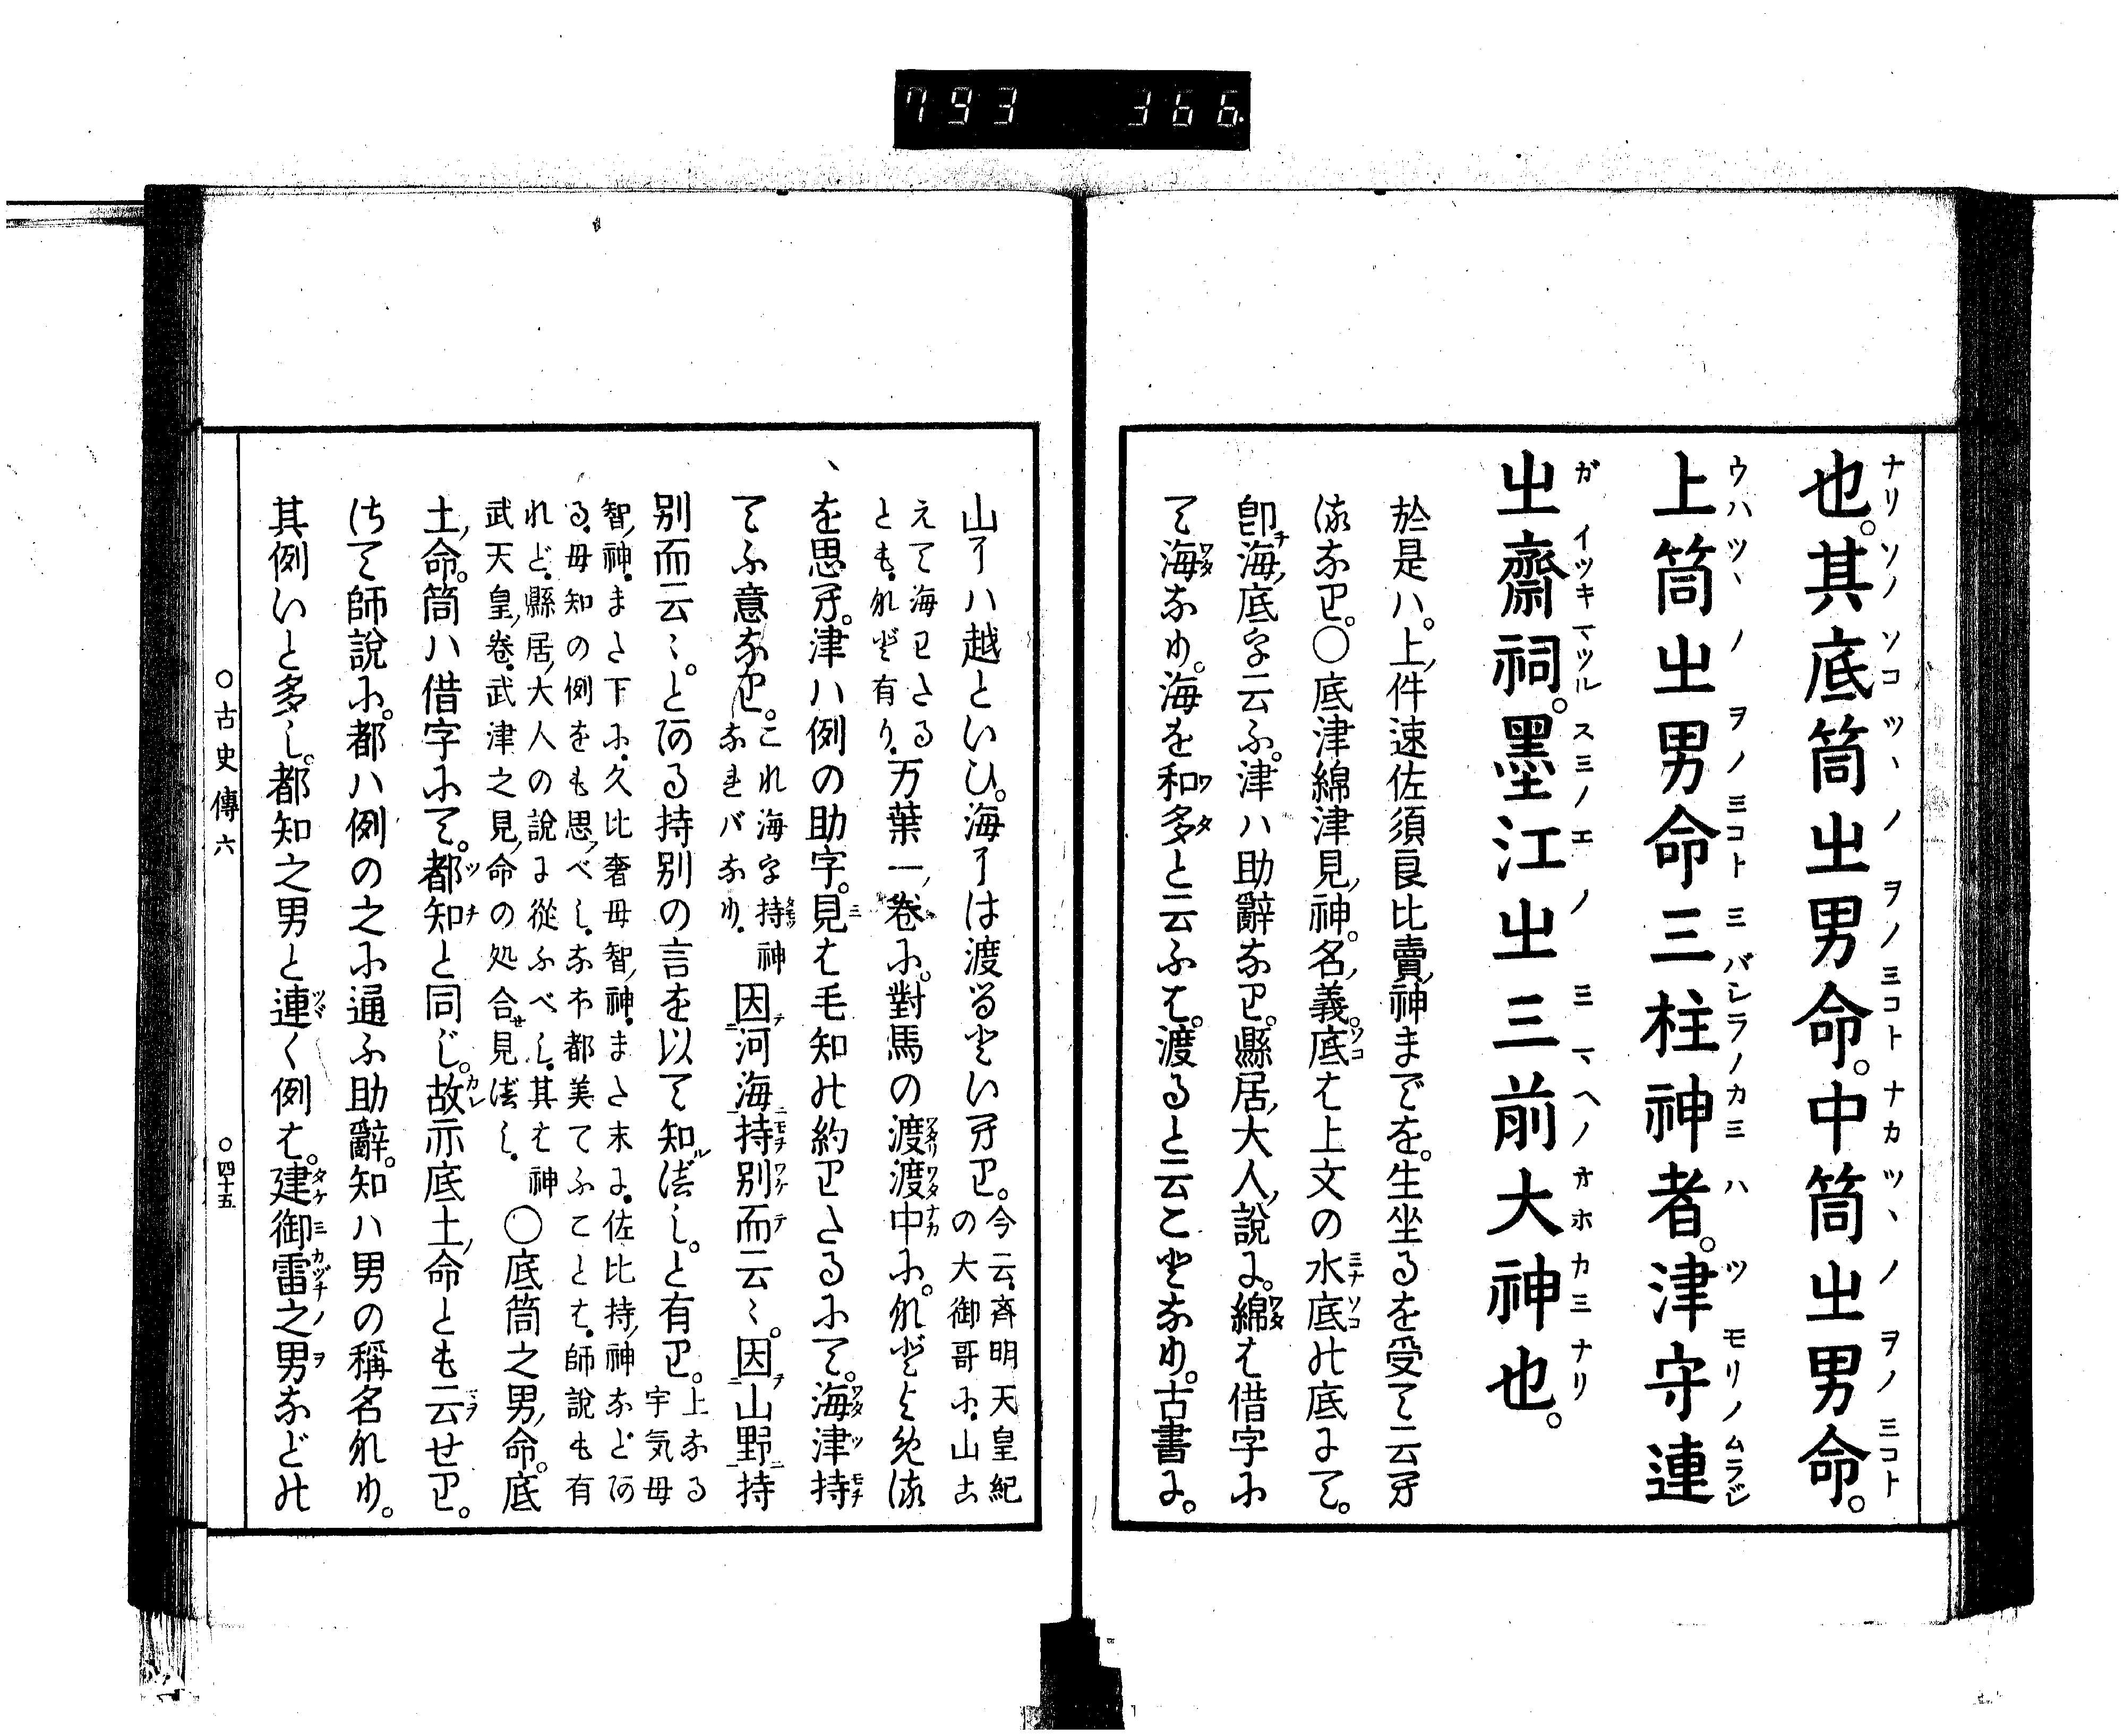 793 366
也。其底筒㞢男命。中筒㞢男命。
上筒㞢男命三柱神者。津守連
㞢齋祠。墨江㞢三前大神也。
於是ハ。上件速佐須良比賣神までを。生坐るを受て云る
係なり。○底津綿津見神。名義。底は上文の水底の底にて。
卽海底を云ふ。津ハ助辭なり。縣居大人説に。綿は借字にて
海なり。海を和多と云ふは。渡ると云ことなり。古書に。
山をハ越といひ。海をは渡るといへり。今云。齊明天皇紀
の大御哥に。山古
えて海わたる
とも。など有り。万葉一卷に。對馬の渡渡中に。などよめる
を思へ。津ハ例の助字。見は毛知の約りたるにて。海津持
てふ意なり。これ海字持神
なればなり。因河海持別而云〻。因山野持
別而云〻。とある持別の言を以て知べし。と有り。上なる
宇気母
智神。また下に。久比奢母智神。また末に。佐比持神などあ
る。母知の例をも思べし。なほ都美てふことは。師説も有
れど。縣居大人の說に從ふべし。其は神
武天皇卷。武津之見命の処合せ見べし。○底筒之男命。底
土命。筒ハ借字にて。都知と同じ。故亦底土命とも云せり。
さて師說に。都ハ例の之に通ふ助辭。知ハ男の稱名なり。
其例いと多し。都知之男と連く例は。建御雷之男などの
○古史傳六 ○四十五